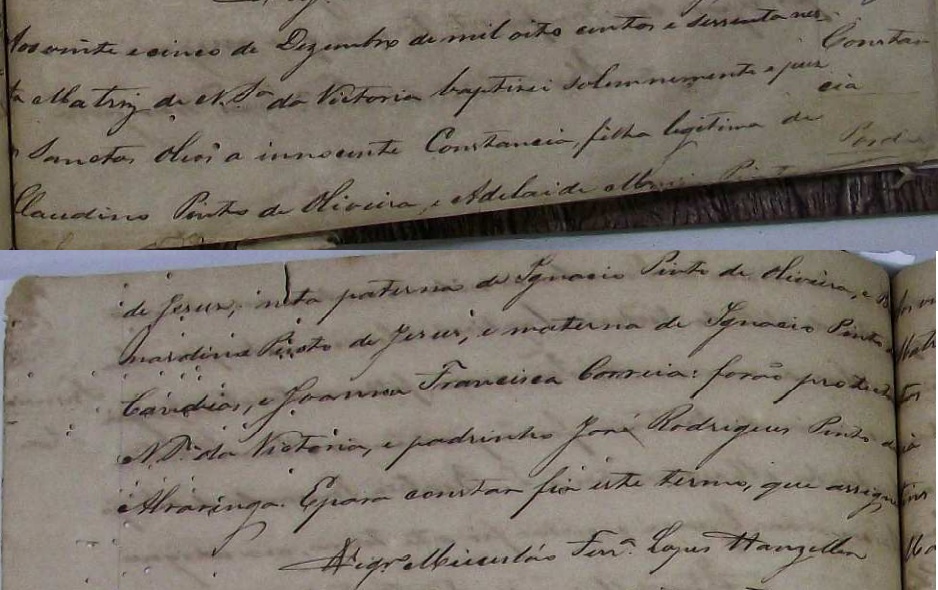 Aos vinte e cinco de Dezembro de mil oito centos e sessenta nes-
ta Matriz de N. Sra da Victoria baptizei solemnemente e puz
Sanctos Oleos a innocente Constancia, filha legitima de
Claudino Pinto de Oliveira, e Adelaide Maria Pinto
Constan
cia
de Jesus, neta paterna de Ignacio Pinto de Oliveira, e Ber
nardina Pinto de Jesus, e materna de Ignacio Pinto
Candias, e Joanna Francisca Correia: forão protect
N. Sra da Victoria, e padrinho José Rodrigues Pinto de
Alvarenga. E para constar fiz este termo, que assigno
Vigr.o Miceslão Ferr.a Lopes Wanzeller